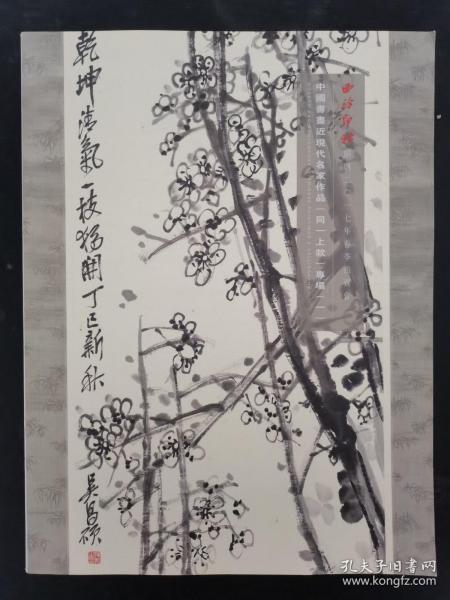 乾坤清氣一枝犹開丁巳新秋
吴昌碩
西泠印社
七年春季拍賣會
中國書畫近現代名家作品「同一上款」專場
孔夫子旧书网
www.kongfz.com